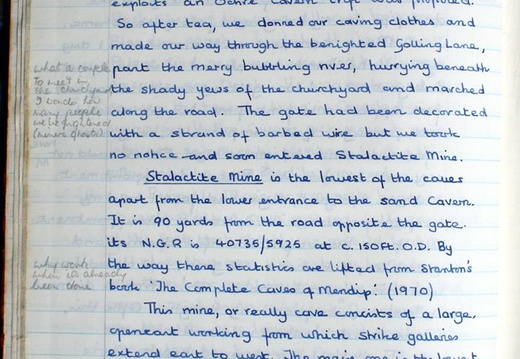 exploits an Ochre Cavern trip was proposed.
So after tea, we donned our caving clothes and
made our way through the benighted Golling Lane,
past the merry bubbling river, hurrying beneath
the shady yews of the churchyard and marched
along the road. The gate had been decorated
with a strand of barbed wire but we took
no notice and soon entered Stalactite Mine.
Stalactite Mine is the lowest of the caves
apart from the lower entrance to the sand Cavern.
It is 90 yards from the road opposite the gate.
its N.G.R is 40736/5925 at c. 150Ft. O.D. By
the way these statistics are lifted from Stanton's
book 'The Complete Caves of Mendip'. (1970)
This mine, or really cave consists of a large,
opencast working from which strike galleries
extend east to west. The main one is the lowest
what a couple
to meet in
the churchyard
I wonder how
many people
we frightened
why work
when its already
been done